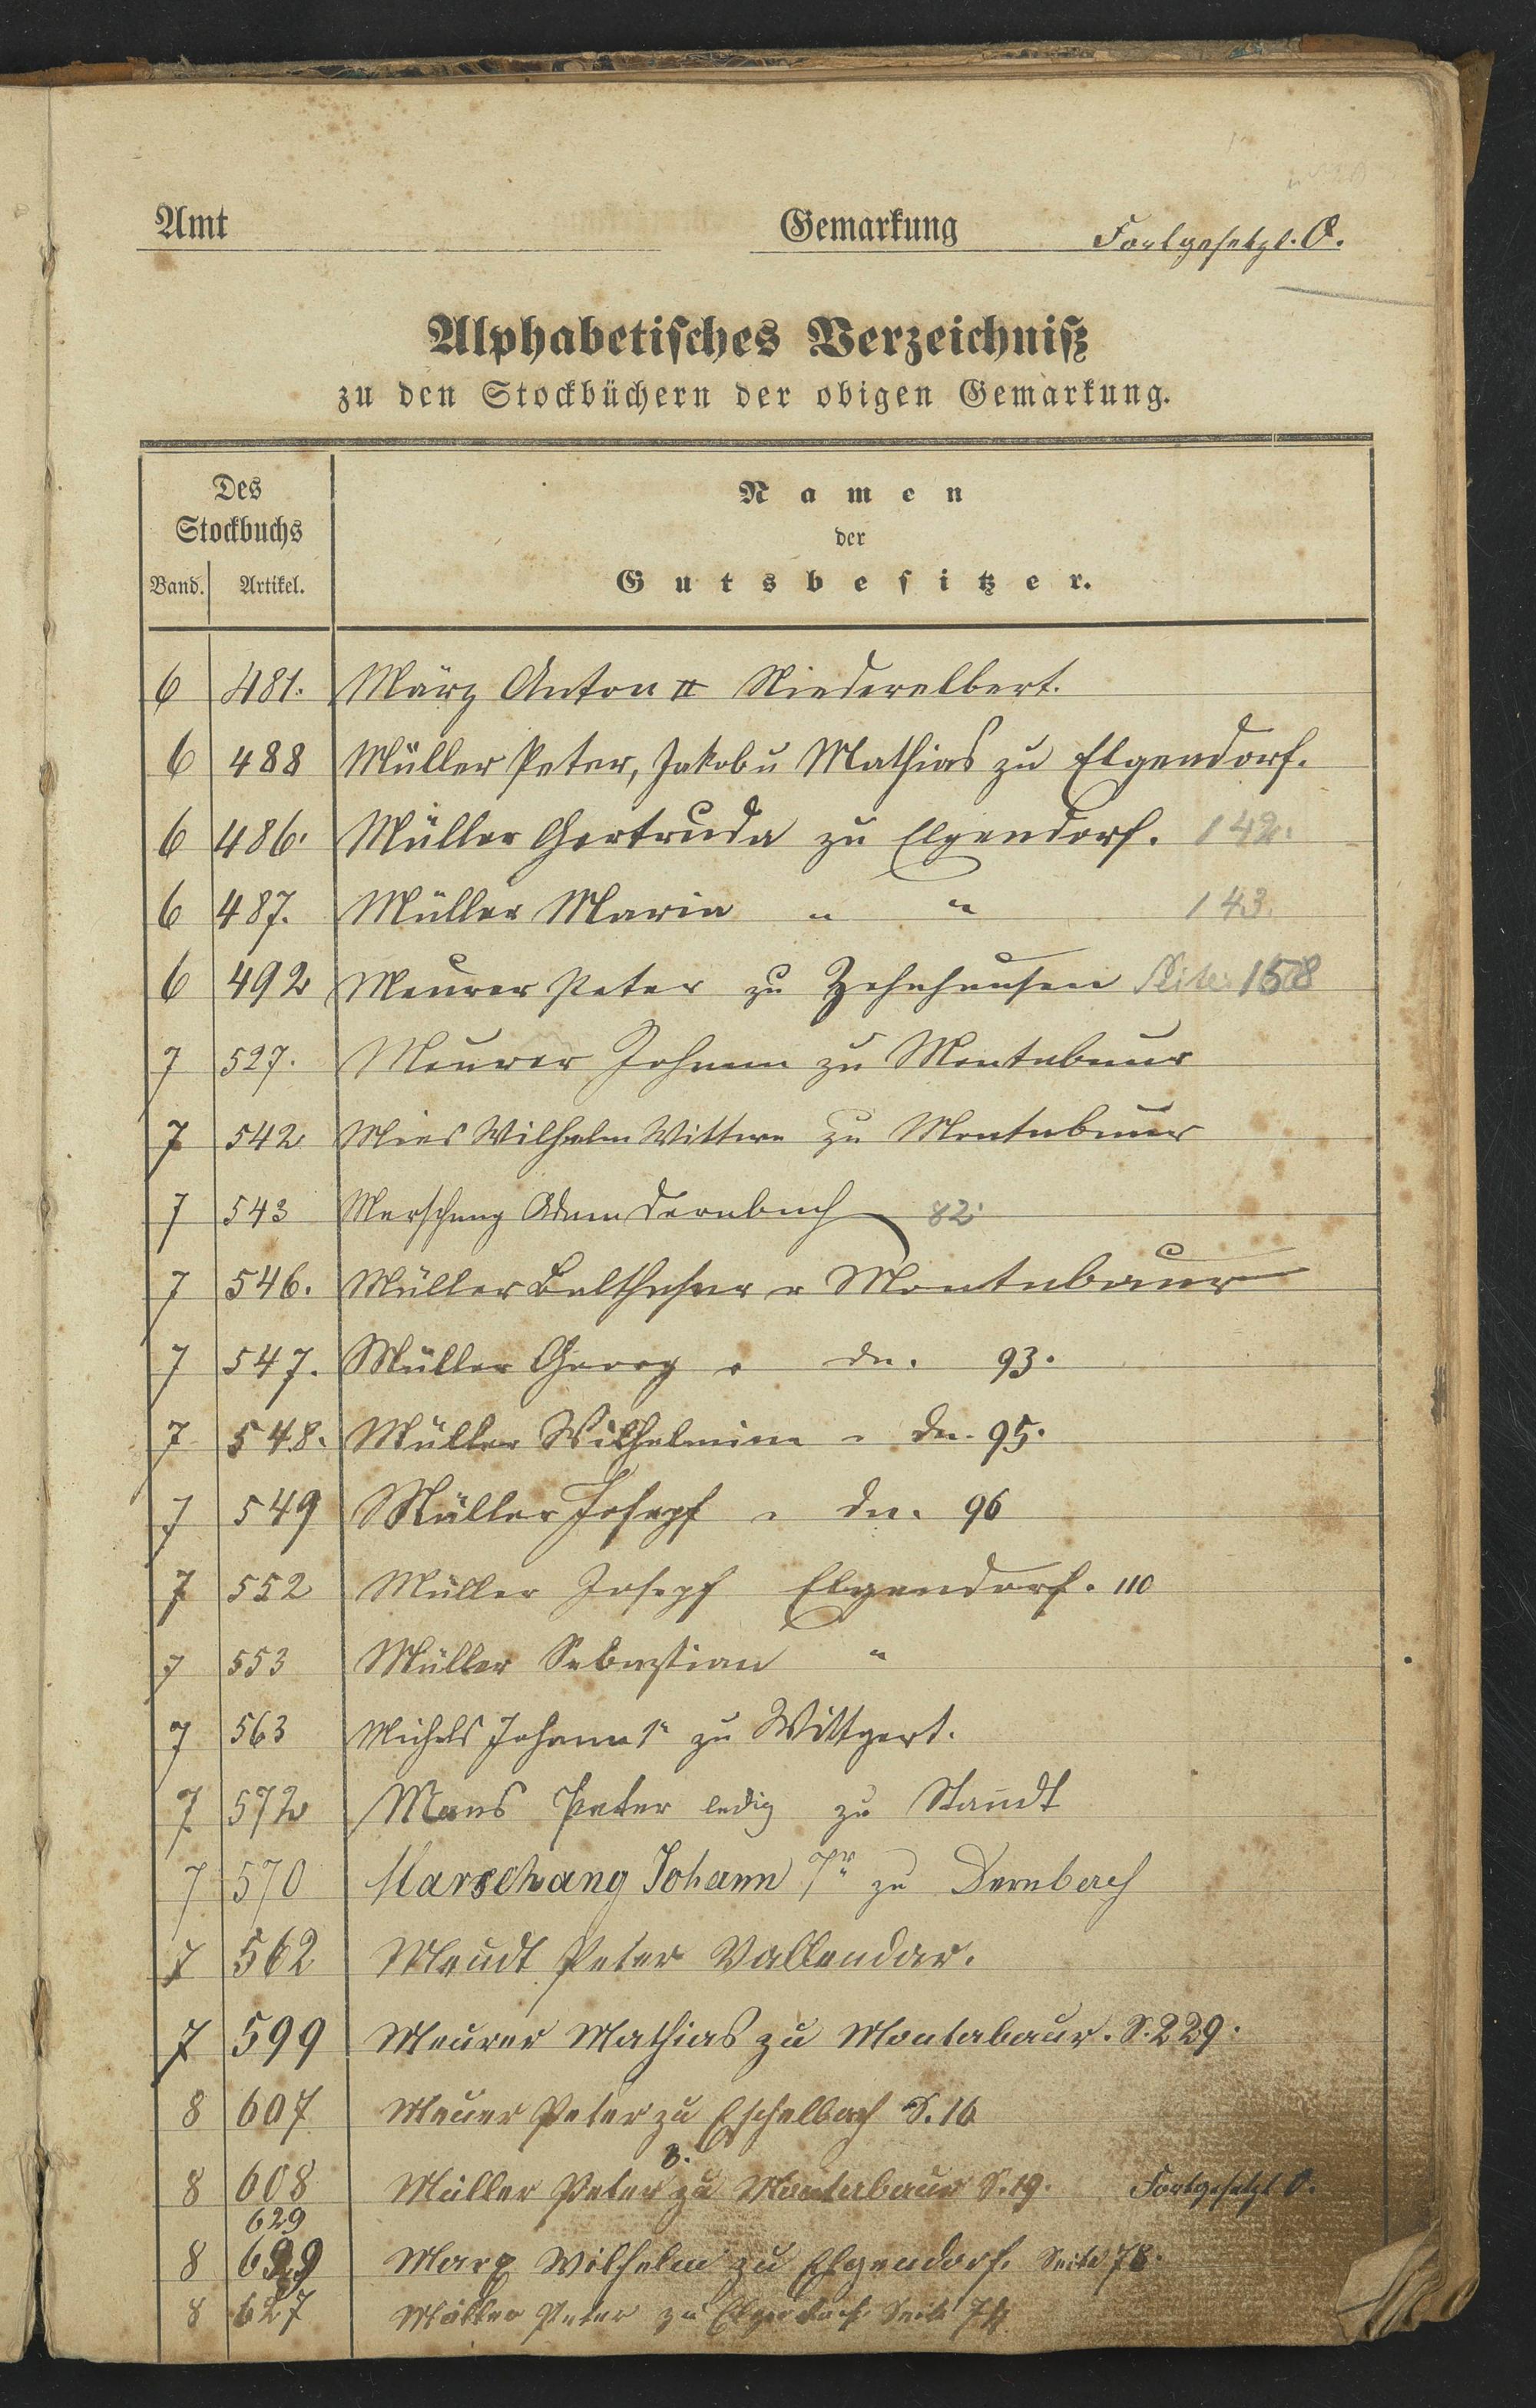 Amt Gemarkung Fortgesetzt. O.
Alphabetisches Verzeichniß
zu den Stockbüchern der obigen Gemarkung.
Des
Stockbuchs
Band. Artikel.
Namen
der
Gutsbesitzer.
6 481. März Anton II Niederelbert.
6 488 Müller Peter, Jakob u Mathias zu Elgendorf.
6 486. Müller Gertruda zu Elgendorf. 142.
6 487. Müller Maria " " 143.
6 492 Meurer Peter zu Zehnhausen Seite 158
7 527. Meurer Johann zu Montabaur
7 542 Mies Wilhelm Wittwe zu Montabaur
7 543 Marschang Adam Dernbach 82.
7 546. Müller Balthasar " Montabaur
7 547. Müller Georg " do. 93.
7 548. Müller Wilhelmine " do. 95.
7 549 Müller Joseph " do. 96
7 552 Müller Joseph Elgendorf. 110
7 553 Müller Sebastian "
7 563 Michels Johann 1r zu Wittgert.
7 572 Mans Peter ledig zu Staudt
7 570 Marschang Johann 7r zu Dernbach
7 562 Meudt Peter Vallendar.
7 599 Meurer Mathias zu Montabaur. S. 229.
8 607 Meuer Peter zu Eschelbach S. 16
8 608 Müller Peter 3. zu Montabaur S. 19. Fortgesetzt O.
629
8 699 Marx Wilhelm zu Elgendorf. Seite 78.
8 627 Müller Peter zu Elgendorf Seite